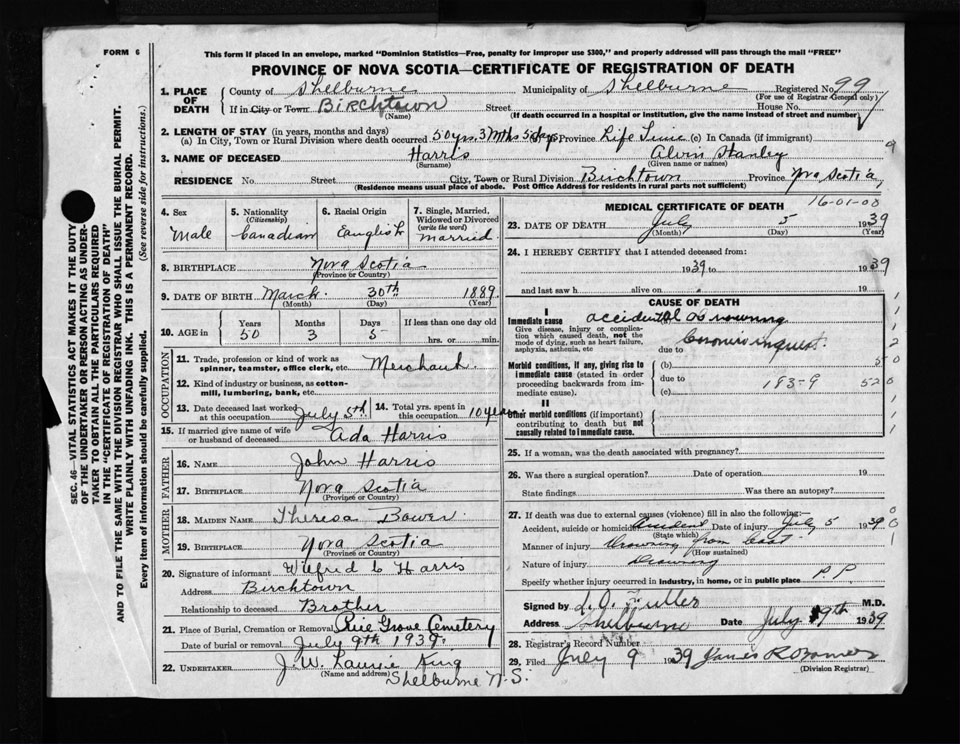 FORM 6
This form if placed in an envelope, marked "Dominion Statistics—Free, penalty for improper use $300," and properly addressed will pass through the mail "FREE"
PROVINCE OF NOVA SCOTIA—CERTIFICATE OF REGISTRATION OF DEATH
SEC. 46—VITAL STATISTICS ACT MAKES IT THE DUTY
OF THE UNDERTAKER OR PERSON ACTING AS UNDER-
TAKER TO OBTAIN ALL THE PARTICULARS REQUIRED
IN THE "CERTIFICATE OF REGISTRATION OF DEATH"
AND TO FILE THE SAME WITH THE DIVISION REGISTRAR WHO SHALL ISSUE THE BURIAL PERMIT.
WRITE PLAINLY WITH UNFADING INK. THIS IS A PERMANENT RECORD.
Every item of information should be carefully supplied. (See reverse side for instructions.)
1. PLACE OF DEATH County of Shelburne Municipality of Shelburne Registered No. 99
(For use of Registrar General only)
If in City or Town Birchtown Street House No.
(Name) (If death occurred in a hospital or institution, give the name instead of street and number)
2. LENGTH OF STAY (in years, months and days)
(a) In City, Town or Rural Division where death occurred 50 yrs. 3 Mths 5 days (b) Province Life Time (c) In Canada (if immigrant)
3. NAME OF DECEASED Harris Alvin Stanley
(Surname) (Given name or names)
RESIDENCE No. Street City, Town or Rural Division Birchtown Province Nova Scotia
(Residence means usual place of abode. Post Office Address for residents in rural parts not sufficient)
4. Sex Male
5. Nationality (Citizenship) Canadian
6. Racial Origin English
7. Single, Married, Widowed or Divorced (write the word) married
8. BIRTHPLACE Nova Scotia
(Province or Country)
9. DATE OF BIRTH March 30th 1889
(Month) (Day) (Year)
10. AGE in Years 50 Months 3 Days 5 If less than one day old hrs. or min.
OCCUPATION
11. Trade, profession or kind of work as spinner, teamster, office clerk, etc. Merchant
12. Kind of industry or business, as cotton-mill, lumbering, bank, etc.
13. Date deceased last worked at this occupation July 5th 14. Total yrs. spent in this occupation 10 years
15. If married give name of wife or husband of deceased Ada Harris
FATHER
16. NAME John Harris
17. BIRTHPLACE Nova Scotia
(Province or Country)
MOTHER
18. MAIDEN NAME Theresa Bower
19. BIRTHPLACE Nova Scotia
(Province or Country)
20. Signature of informant Wilfred C Harris
Address Birchtown
Relationship to deceased Brother
21. Place of Burial, Cremation or Removal Grove Cemetery
Date of burial or removal July 9th 1939
22. UNDERTAKER J. W. Laurie King
(Name and address) Shelburne N.S.
MEDICAL CERTIFICATE OF DEATH 16-01-00
23. DATE OF DEATH July 5 1939
(Month) (Day) (Year)
24. I HEREBY CERTIFY that I attended deceased from:
1939 to 1939
and last saw h alive on 19
CAUSE OF DEATH
I
Immediate cause accidental drowning
Give disease, injury or complication which caused death, not the mode of dying, such as heart failure, asphyxia, asthenia, etc
due to inquest
Morbid conditions, if any, giving rise to immediate cause (stated in order proceeding backwards from immediate cause).
(b)
due to 183-9
(c)
II
Other morbid conditions (if important) contributing to death but not causally related to immediate cause.
25. If a woman, was the death associated with pregnancy?
26. Was there a surgical operation? Date of operation 19
State findings Was there an autopsy?
27. If death was due to external causes (violence) fill in also the following:—
Accident, suicide or homicide accident Date of injury July 5 1939
(State which)
Manner of injury Drowning from boat
(How sustained)
Nature of injury Drowning
Specify whether injury occurred in industry, in home, or in public place P.P.
Signed by L.O. Fuller M.D.
Address Shelburne Date July 9th 1939
28. Registrar's Record Number
29. Filed July 9 1939
(Division Registrar)